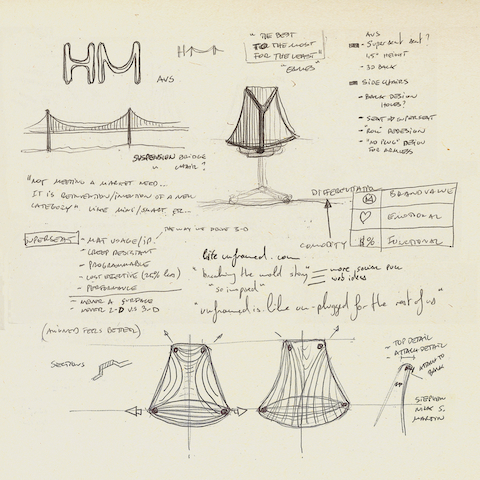 HM
HM
AVS
"THE BEST
TO THE MOST
FOR THE LEAST"
"EAMES"
AVS
- SUPERSEAT SEAT?
- 1.5" HEIGHT
- 3D BACK
SIDE CHAIRS
- BACK DESIGN
HOLES?
- SEAT
- "ROLL REDESIGN
- "NO PLUG" DESIGN
FOR ARMLESS
SUSPENSION BRIDGE
CHAIR?
"NOT MEETING A MARKET NEED...
IT IS REINVENTION/INVENTION OF A NEW
CATEGORY" LIKE MINI/SMART ETC...
DIFFERENTIATED
BRAND VALUE
EMOTIONAL
$% FUNCTIONAL
COMMODITY
THE WAY WE DRIVE 3-D
SUPERSEAT
- MAT USAGE/IP?
- CREEP RESISTANT
- PROGRAMMABLE
- COST EFFECTIVE (25% less)
- PERFORMANCE
- NEVER A SURFACE
- NEVER 2-D VS 3-D
life unframed.com
"breaking the mold story"
"so inspired"
more social
web ideas
"unframed is like un-plugged for the rest of us"
(ALIGNED FEELS BETTER)
SECTIONS
- TOP DETAIL
- ATTACH DETAIL
ATTACH TO
BACK
STEPHEN
NICK S.
MARTIN